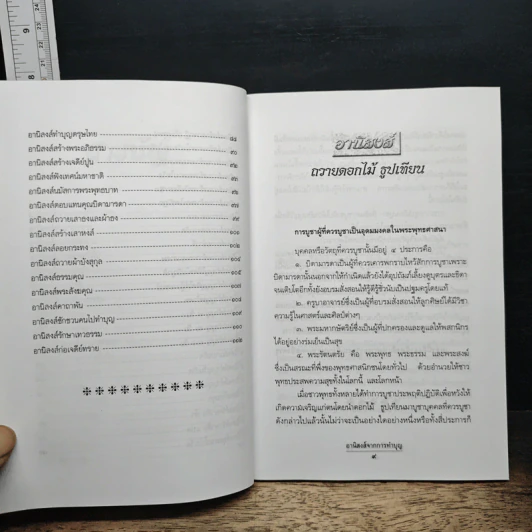 อานิสงส์ทำบุญตรุษไทย
อานิสงส์สร้างพระอภิธรรม
อานิสงส์สร้างเจดีย์ปูน ๙๒
อานิสงส์ฟังเทศน์มหาชาติ
อานิสงส์นมัสการพระพุทธบาท
อานิสงส์ตอบแทนคุณบิดามารดา
อานิสงส์ถวายเสาธงและผ้าธง
อานิสงส์สร้างเสาหงส์ ๑๐๑
อานิสงส์ลอยกระทง ๑๐๒
อานิสงส์ถวายผ้าบังสุกุล
อานิสงส์ธรรมคุณ ๑๐๕
อานิสงส์พระสังฆคุณ
อานิสงส์คาถาพัน
อานิสงส์ชักชวนคนไปทำบุญ
อานิสงส์รักษาเทวธรรม
อานิสงส์ก่อเจดีย์ทราย
อานิสงส์
ถวายดอกไม้ ธูปเทียน
การบูชาผู้ที่ควรบูชาเป็นอุดมมงคลในพระพุทธศาสนา
บุคคลหรือวัตถุที่ควรบูชานั้นมีอยู่ ๔ ประการคือ
๑. บิดามารดาเป็นผู้ที่ควรเคารพกราบไหว้สักการบูชาเพราะ
บิดามารดานั้นนอกจากให้กำเนิดแล้วยังได้อุปถัมภ์เลี้ยงดูบุตรและธิดา
จนเติบโตอีกทั้งยังอบรมสั่งสอนให้รู้ดีรู้ชั่วนับเป็นปฐมครูโดยแท้
๒. ครูบาอาจารย์ซึ่งเป็นผู้ที่อบรมสั่งสอนให้ลูกศิษย์ได้มีวิชา
ความรู้ในศาสตร์และศิลป์ต่างๆ
๓. พระมหากษัตริย์ซึ่งเป็นผู้ที่ปกครองและดูแลให้พสกนิกร
ได้อยู่อย่างร่มเย็นเป็นสุข
๔. พระรัตนตรัย คือ พระพุทธ พระธรรม และพระสงฆ์
ซึ่งเป็นสรณะที่พึ่งของพุทธศาสนิกชนโดยทั่วไป ด้วยอำนวยให้ชาว
พุทธประสพความสุขทั้งในโลกนี้ และโลกหน้า
เมื่อชาวพุทธทั้งหลายได้ทำการบูชาประพฤติปฏิบัติเพื่อหวังให้
เกิดความเจริญแก่ตนโดยนำดอกไม้ ธูปเทียนมาบูชาบุคคลที่ควรบูชา
ดังกล่าวไปแล้วนั้นไม่ว่าจะเป็นอย่างใดอย่างหนึ่งหรือทั้งสี่ประการก็
อานิสงส์จากการทำบุญ